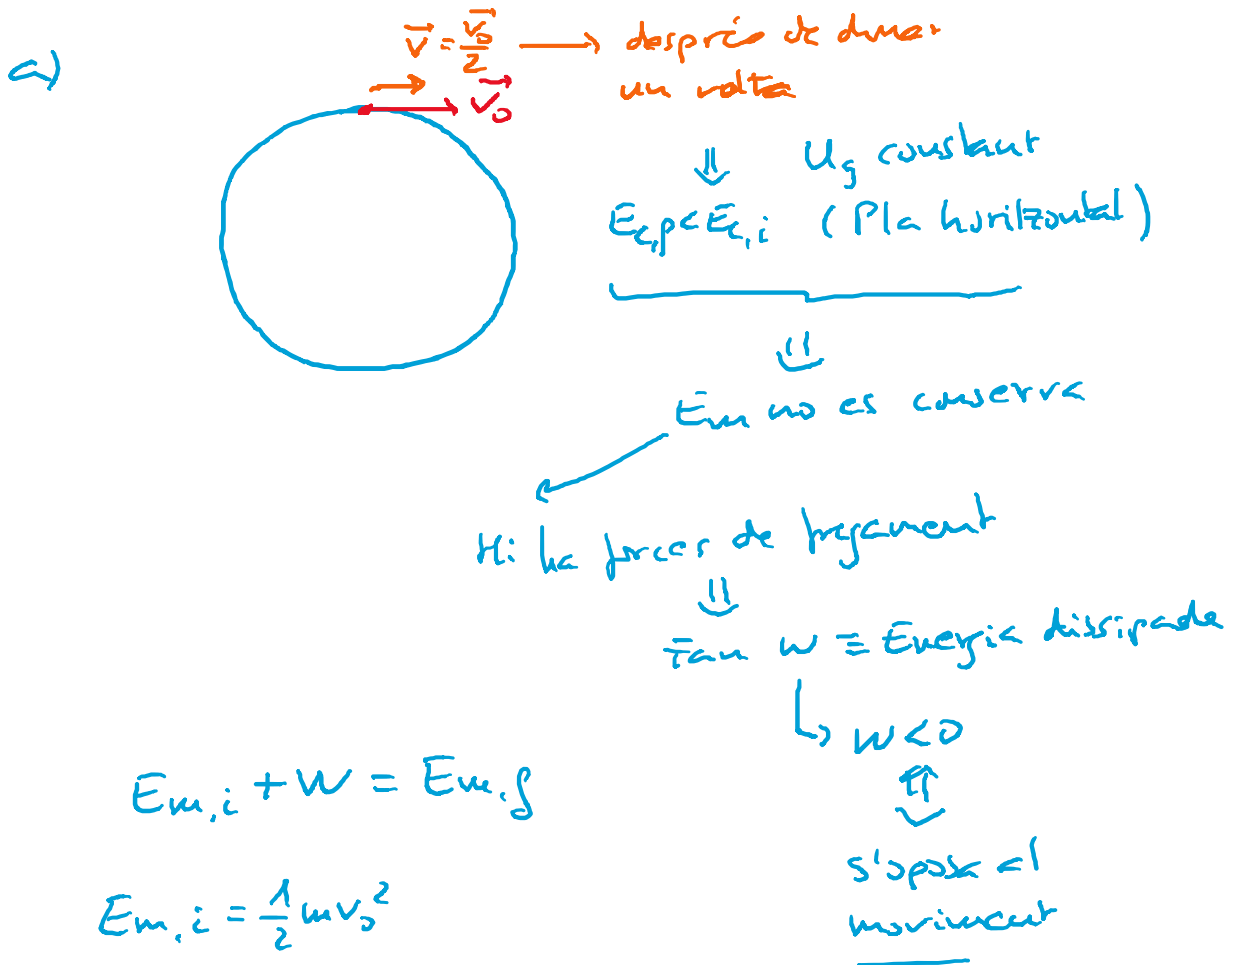 a)
v⃗ = v⃗₀/2 → després de donar
un volta
v⃗₀
⇓ Ug constant
Ec,f < Ec,i (Pla horitzontal)
⇓
Em no es conserva
Hi ha forces de fregament
⇓
Fan W ≡ Energia dissipada
↳ W<0
⇕
s'oposa al
moviment
Em,i + W = Em,f
Em,i = 1/2 mv₀²